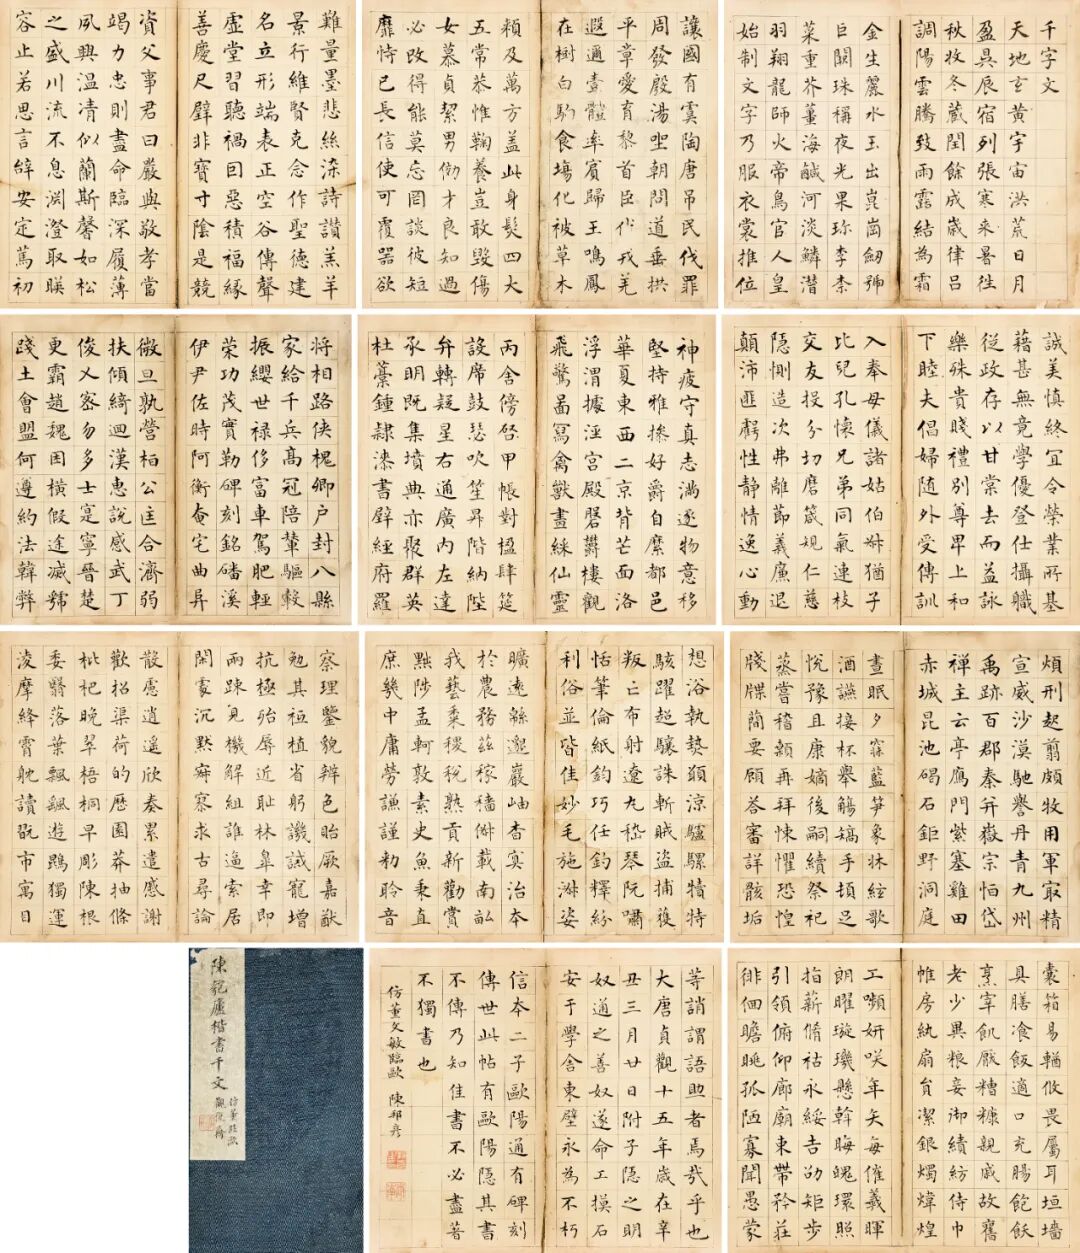 千字文
天地玄黃宇宙洪荒日月
盈昃辰宿列張寒来暑徃
秋收冬蔵閏餘成歲律呂
調陽雲騰致雨露結為霜
金生麗水玉出崑崗劔號
巨闕珠稱夜光果珎李柰
菜重芥薑海鹹河淡鱗潜
羽翔龍師火帝鳥官人皇
始制文字乃服衣裳推位
讓國有虞陶唐吊民伐罪
周發殷湯坐朝問道垂拱
平章愛育黎首臣伏戎羌
遐邇壹體率賓歸王鳴鳳
在樹白駒食場化被草木
頼及萬方盖此身髮四大
五常恭惟鞠養豈敢毀傷
女慕貞絜男効才良知過
必改得能莫忘罔談彼短
靡恃己長信使可覆器欲
難量墨悲絲染詩讃羔羊
景行維賢克念作聖德建
名立形端表正空谷傳聲
虛堂習聽禍因惡積福緣
善慶尺璧非寶寸陰是競
資父事君曰嚴與敬孝當
竭力忠則盡命臨深履薄
夙興温凊似蘭斯馨如松
之盛川流不息淵澄取暎
容止若思言辭安定篤初
誠美慎終宜令榮業所基
藉甚無竟學優登仕攝職
従政存以甘棠去而益詠
樂殊貴賤禮別尊卑上和
下睦夫倡婦随外受傅訓
入奉母儀諸姑伯叔猶子
比兒孔懷兄弟同氣連枝
交友投分切磨箴規仁慈
隱惻造次弗離節義廉退
顛沛匪虧性静情逸心動
神疲守真志滿逐物意移
堅持雅操好爵自縻都邑
華夏東西二京背芒面洛
浮渭據涇宮殿磐欝樓觀
飛驚啚寫禽獸畫綵仙靈
丙舎傍啓甲帳對楹肆筵
設席鼓瑟吹笙昇階納陛
弁轉疑星右通廣内左達
承明既集墳典亦聚群英
杜藁鍾隸漆書壁經府羅
將相路侠槐卿户封八縣
家給千兵高冠陪輦驅轂
振纓世禄侈富車駕肥輕
榮功茂實勒碑刻銘磻溪
伊尹佐時阿衡奄宅曲阜
微旦孰營桓公匡合濟弱
扶傾綺迴漢惠說感武丁
俊乂密勿多士寔寧晉楚
更霸趙魏困横假途滅虢
踐土會盟何遵約法韓弊
煩刑起翦頗牧用軍最精
宣威沙漠馳譽丹青九州
禹跡百郡秦并嶽宗恒岱
禪主云亭鴈門紫塞雞田
赤城昆池碣石鉅野洞庭
晝眠夕寐藍笋象牀絃歌
酒讌接杯舉觴矯手頓足
悅豫且康嫡後嗣續祭祀
蒸嘗稽顙再拜悚懼恐惶
牋牒簡要顧答審詳骸垢
想浴執熱願涼驢騾犢特
駭躍超驤誅斬賊盜捕獲
叛亡布射遼丸嵇琴阮嘯
恬筆倫紙鈞巧任釣釋紛
利俗並皆佳妙毛施淑姿
曠遠緜邈巖岫杳冥治本
於農務茲稼穡俶載南畝
我藝黍稷稅熟貢新勸賞
黜陟孟軻敦素史魚秉直
庶幾中庸勞謙謹勑聆音
察理鑒貌辨色貽厥嘉猷
勉其祗植省躬譏誡寵增
抗極殆辱近耻林皐幸即
兩踈見機解組誰逼索居
閑處沉默寂寥求古尋論
散慮逍遥欣奏累遣慼謝
歡招渠荷的歷園莽抽條
枇杷晚翠梧桐早彫陳根
委翳落葉飄颻遊鵾獨運
凌摩絳霄耽讀翫市寓目
囊箱易輶攸畏屬耳垣墻
具膳飡飯適口充腸飽飫
烹宰飢厭糟糠親戚故舊
老少異粮妾御績紡侍巾
帷房紈扇員潔銀燭煒煌
工嚬妍咲年矢每催羲暉
朗曜璇璣懸斡晦魄環照
指薪脩祜永綏吉劭矩步
引領俯仰廊廟束帶矜莊
徘徊瞻眺孤陋寡聞愚蒙
等誚謂語助者焉哉乎也
大唐貞觀十五年歲在辛
丑三月廿日附子隱之明
奴道之善奴遂命工摸石
安于學舍東壁永為不朽
信本二子歐陽通有碑刻
傳世此帖有歐陽隱其書
不傳乃知佳書不必盡著
不獨書也
仿董文敏臨歐 陳邦彥
陳匏廬楷書千文